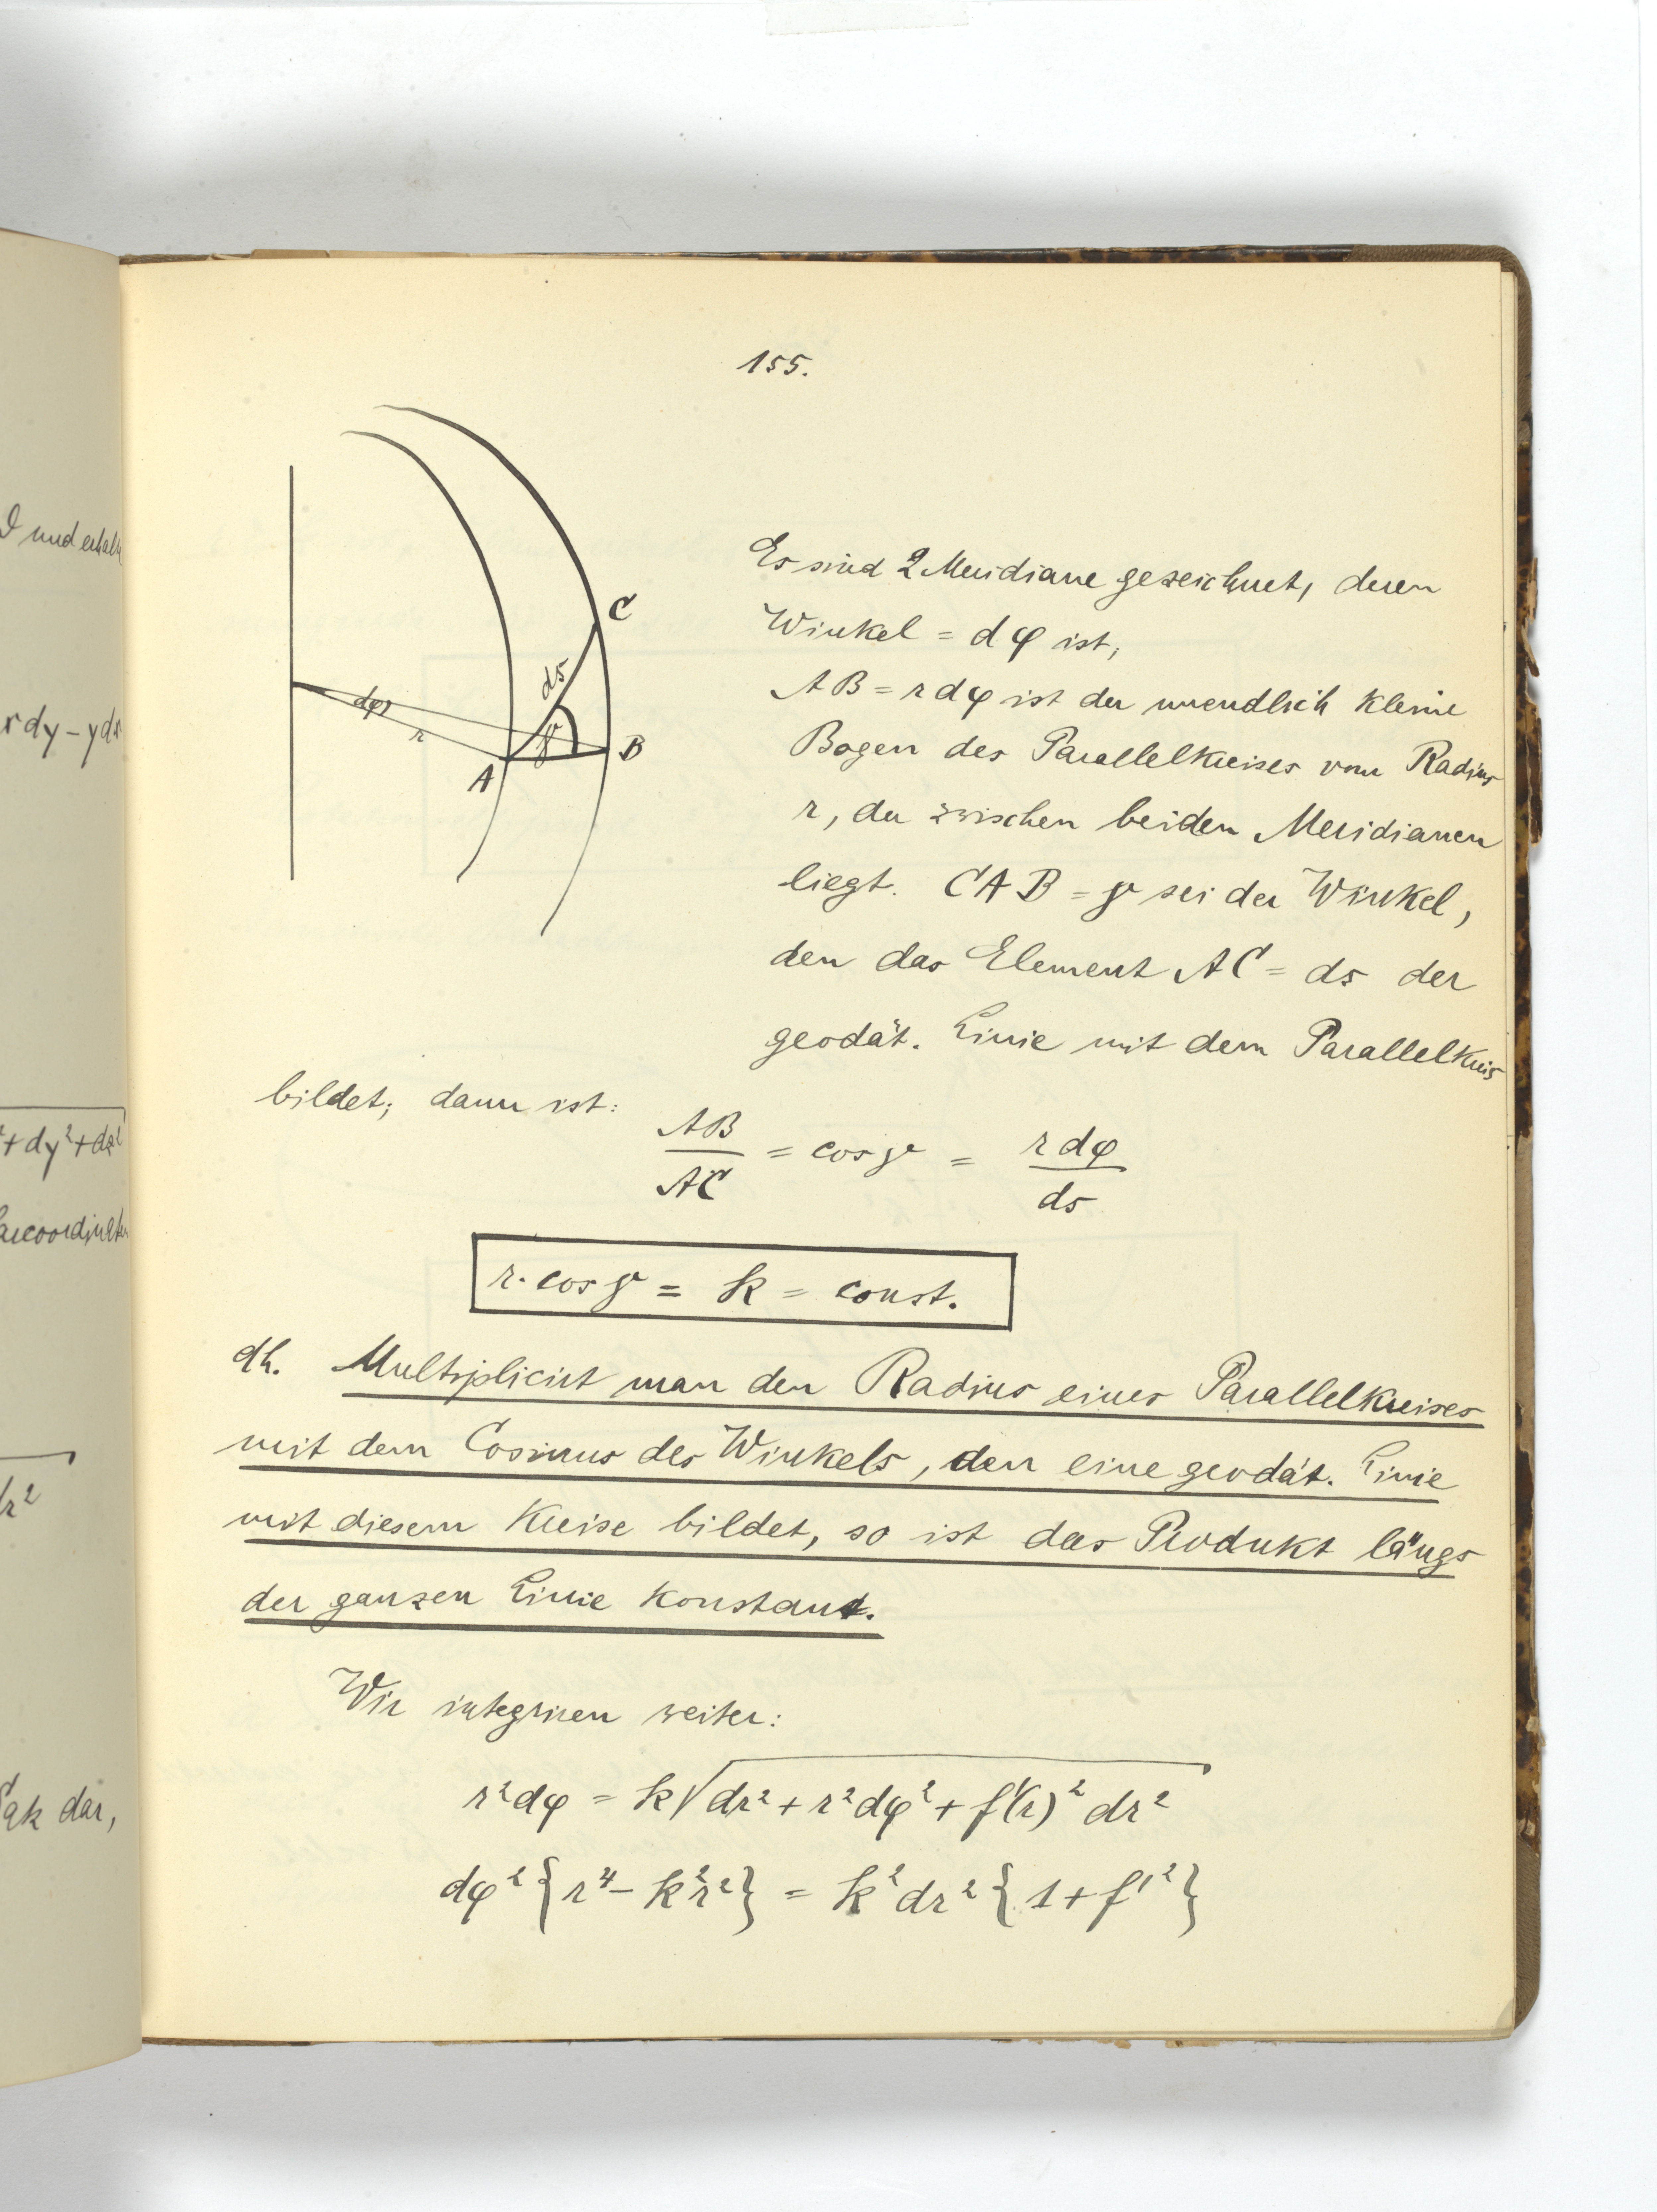 155.
C
ds
dφ
r
γ
A
B
Es sind 2 Meridiane gezeichnet, deren
Winkel = dφ ist,
AB = r dφ ist der unendlich kleine
Bogen des Parallelkreises vom Radius
r, der zwischen beiden Meridianen
liegt. CAB = γ sei der Winkel,
den das Element AC = ds der
geodät. Linie mit dem Parallelkreis
bildet; dann ist:
AB/AC = cos γ = r dφ/ds
r · cos γ = k = const.
dh. Multiplicirt man den Radius eines Parallelkreises
mit dem Cosinus des Winkels, den eine geodät. Linie
mit diesem Kreise bildet, so ist das Produkt längs
der ganzen Linie konstant.
Wir integriren weiter:
r²dφ = k√(dr² + r²dφ² + f'(r)² dr²)
dφ² {r⁴ - k²r²} = k² dr² {1 + f'²}
I und erhalt
x dy - y dx
²+dy²+dz²
arcoordinaten
dr²
dar,